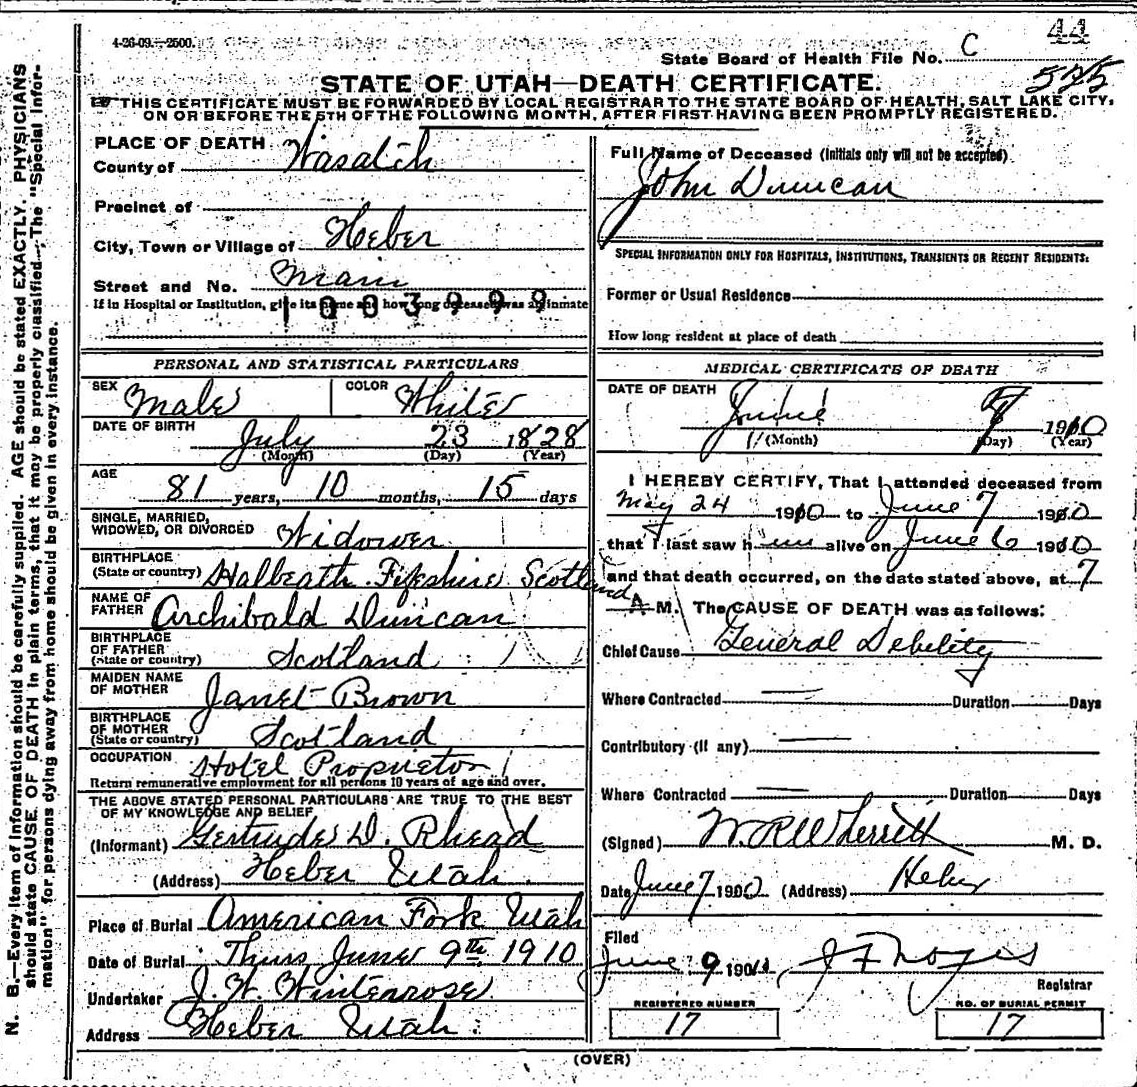 4-26-09.—2500.
44
State Board of Health File No. C
525
STATE OF UTAH—DEATH CERTIFICATE.
THIS CERTIFICATE MUST BE FORWARDED BY LOCAL REGISTRAR TO THE STATE BOARD OF HEALTH, SALT LAKE CITY,
ON OR BEFORE THE 5TH OF THE FOLLOWING MONTH, AFTER FIRST HAVING BEEN PROMPTLY REGISTERED.
N. B.—Every item of information should be carefully supplied. AGE should be stated EXACTLY. PHYSICIANS
should state CAUSE OF DEATH in plain terms, that it may be properly classified. The "Special Infor-
mation" for persons dying away from home should be given in every instance.
PLACE OF DEATH
County of Wasatch
Precinct of
City, Town or Village of Heber
Street and No. Main
If in Hospital or Institution, give its name and how long deceased was an inmate
1003999
PERSONAL AND STATISTICAL PARTICULARS
SEX Male COLOR White
DATE OF BIRTH
July 23 1828
(Month) (Day) (Year)
AGE
81 years, 10 months, 15 days
SINGLE, MARRIED,
WIDOWED, OR DIVORCED Widower
BIRTHPLACE
(State or country) Halbeath Fifeshire Scotland
NAME OF
FATHER Archibald Duncan
BIRTHPLACE
OF FATHER
(State or country) Scotland
MAIDEN NAME
OF MOTHER Janet Brown
BIRTHPLACE
OF MOTHER
(State or country) Scotland
OCCUPATION Hotel Proprietor
Return remunerative employment for all persons 10 years of age and over.
THE ABOVE STATED PERSONAL PARTICULARS ARE TRUE TO THE BEST
OF MY KNOWLEDGE AND BELIEF
(Informant) Gertrude D. Rhead
(Address) Heber Utah.
Place of Burial American Fork Utah
Date of Burial Thurs June 9th 1910
Undertaker J. W. Winterrose
Address Heber Utah.
Full Name of Deceased (Initials only will not be accepted)
John Duncan
SPECIAL INFORMATION ONLY FOR HOSPITALS, INSTITUTIONS, TRANSIENTS OR RECENT RESIDENTS:
Former or Usual Residence
How long resident at place of death
MEDICAL CERTIFICATE OF DEATH
DATE OF DEATH
June 7 1910
(Month) (Day) (Year)
I HEREBY CERTIFY, That I attended deceased from
May 24 1910 to June 7 1910
that I last saw him alive on June 6 1910
and that death occurred, on the date stated above, at 7
A M. The CAUSE OF DEATH was as follows:
Chief Cause General Debility
Where Contracted — Duration Days
Contributory (if any) —
Where Contracted — Duration Days
(Signed) W.R. Wherritt M. D.
Date June 7 1910 (Address) Heber
Filed
June 9 1910 Registrar
REGISTERED NUMBER NO. OF BURIAL PERMIT
17 17
(OVER)